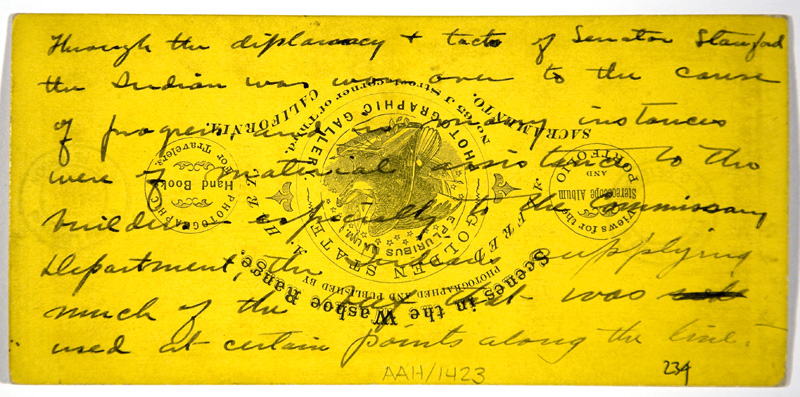 Through the diplomacy + tact of Senator Stanford
the Indian was won over to the cause
of progress, and in many instances
were of material assistance to the
builders especially to the Commissary
Department, the Indians supplying
much of the that was
used at certain points along the line.
AAH/1423
234
Scenes in the Washoe Range.
PHOTOGRAPHED AND PUBLISHED BY
ALFRED A. HART,
GOLDEN STATE
PHOTOGRAPHIC GALLERY
E PLURIBUS UNUM
No. 65 J Street, corner of Third,
SACRAMENTO, CALIFORNIA.
Views for the
Stereoscope Album
AND
PORTFOLIO
PHOTOGRAPHIC
Hand Book
for Travelers.